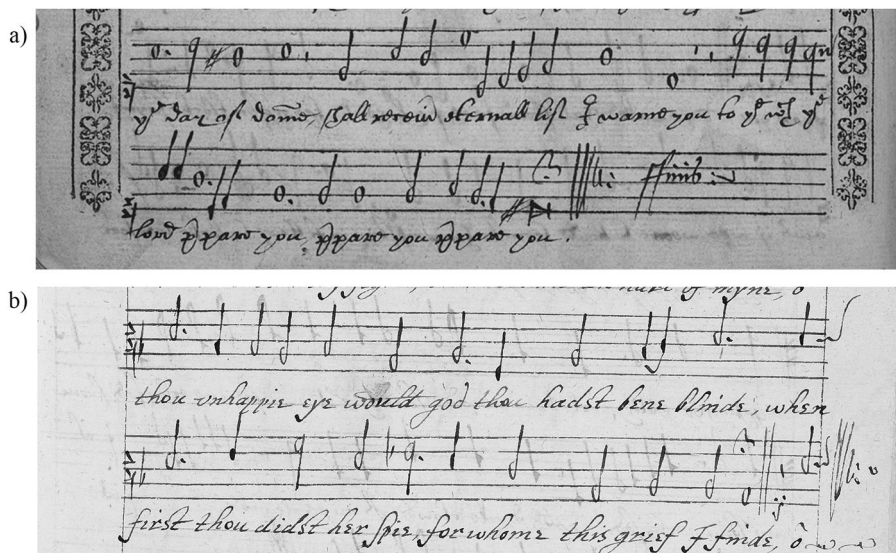 a)
yᵉ day off dome, shall receiv eternall liff I warne you to yᵉ wᶜʰ yᵉ
ffinis
lord p̱pare you, p̱pare you p̱pare you.
b)
of myne, ô
thou vnhappie eye would god thou hadst bene blinde, when
first thou didst her spie, for whome this grief I finde, ô